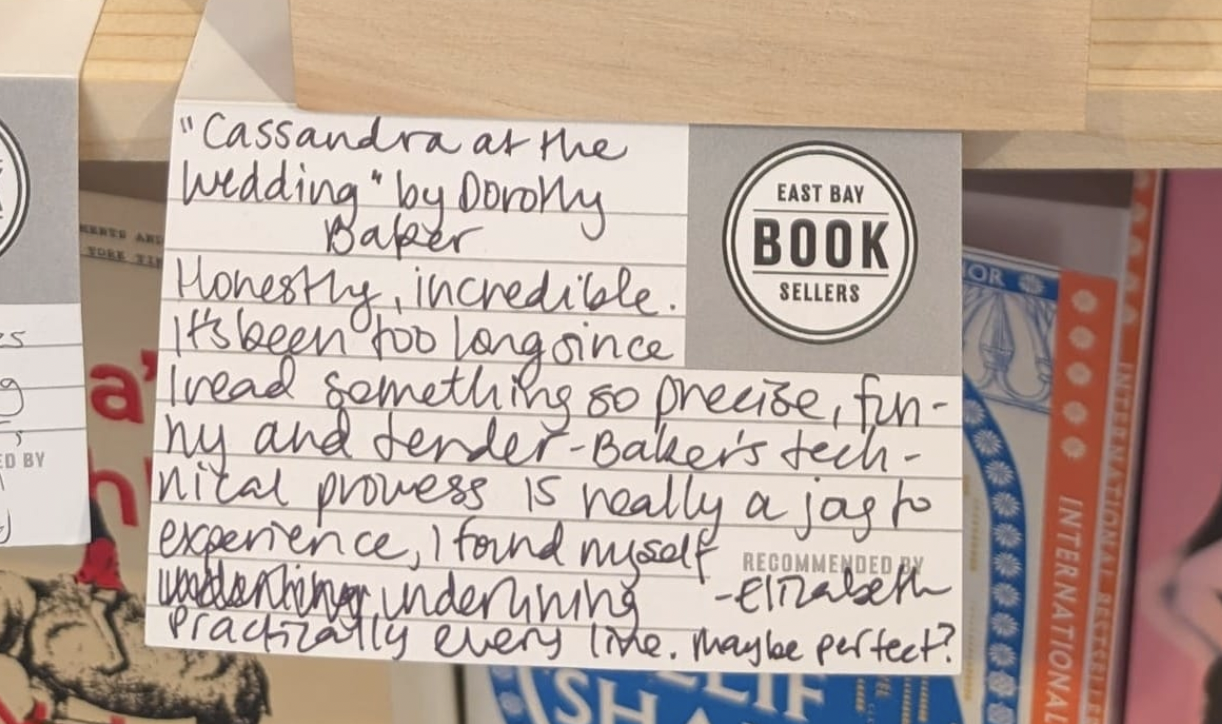 "Cassandra at the
Wedding" by Dorothy
Baker
Honestly, incredible.
It's been too long since
I read something so precise, fun-
ny and tender - Baker's tech-
nical prowess is really a joy to
experience, I found myself
underlining
practically every line. Maybe perfect?
RECOMMENDED BY
- Elizabeth
EAST BAY
BOOK
SELLERS
ED BY
INTERNATIONAL
INTERNATIONAL BESTSELLE